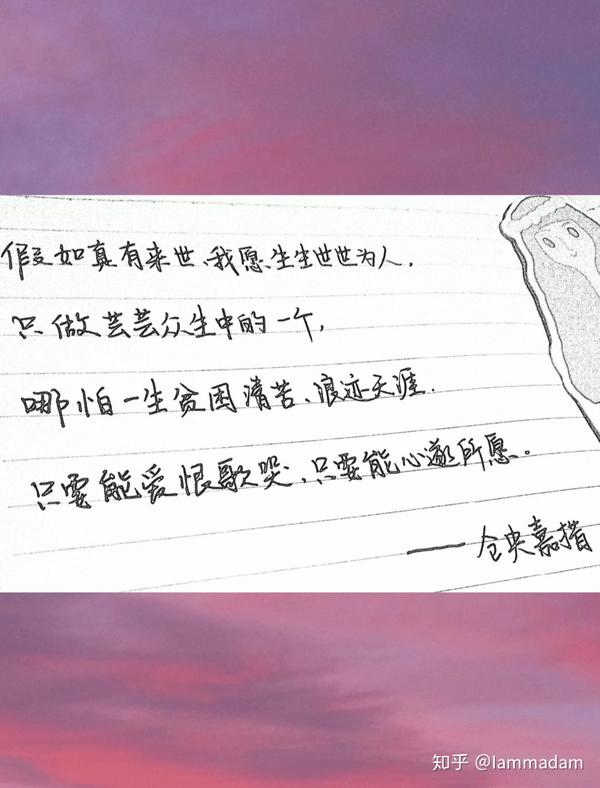 假如真有来世、我愿生生世世为人,
只做芸芸众生中的一个,
哪怕一生贫困清苦、浪迹天涯.
只要能爱恨歌哭、只要能心遂所愿。
——仓央嘉措
知乎 @Iammadam